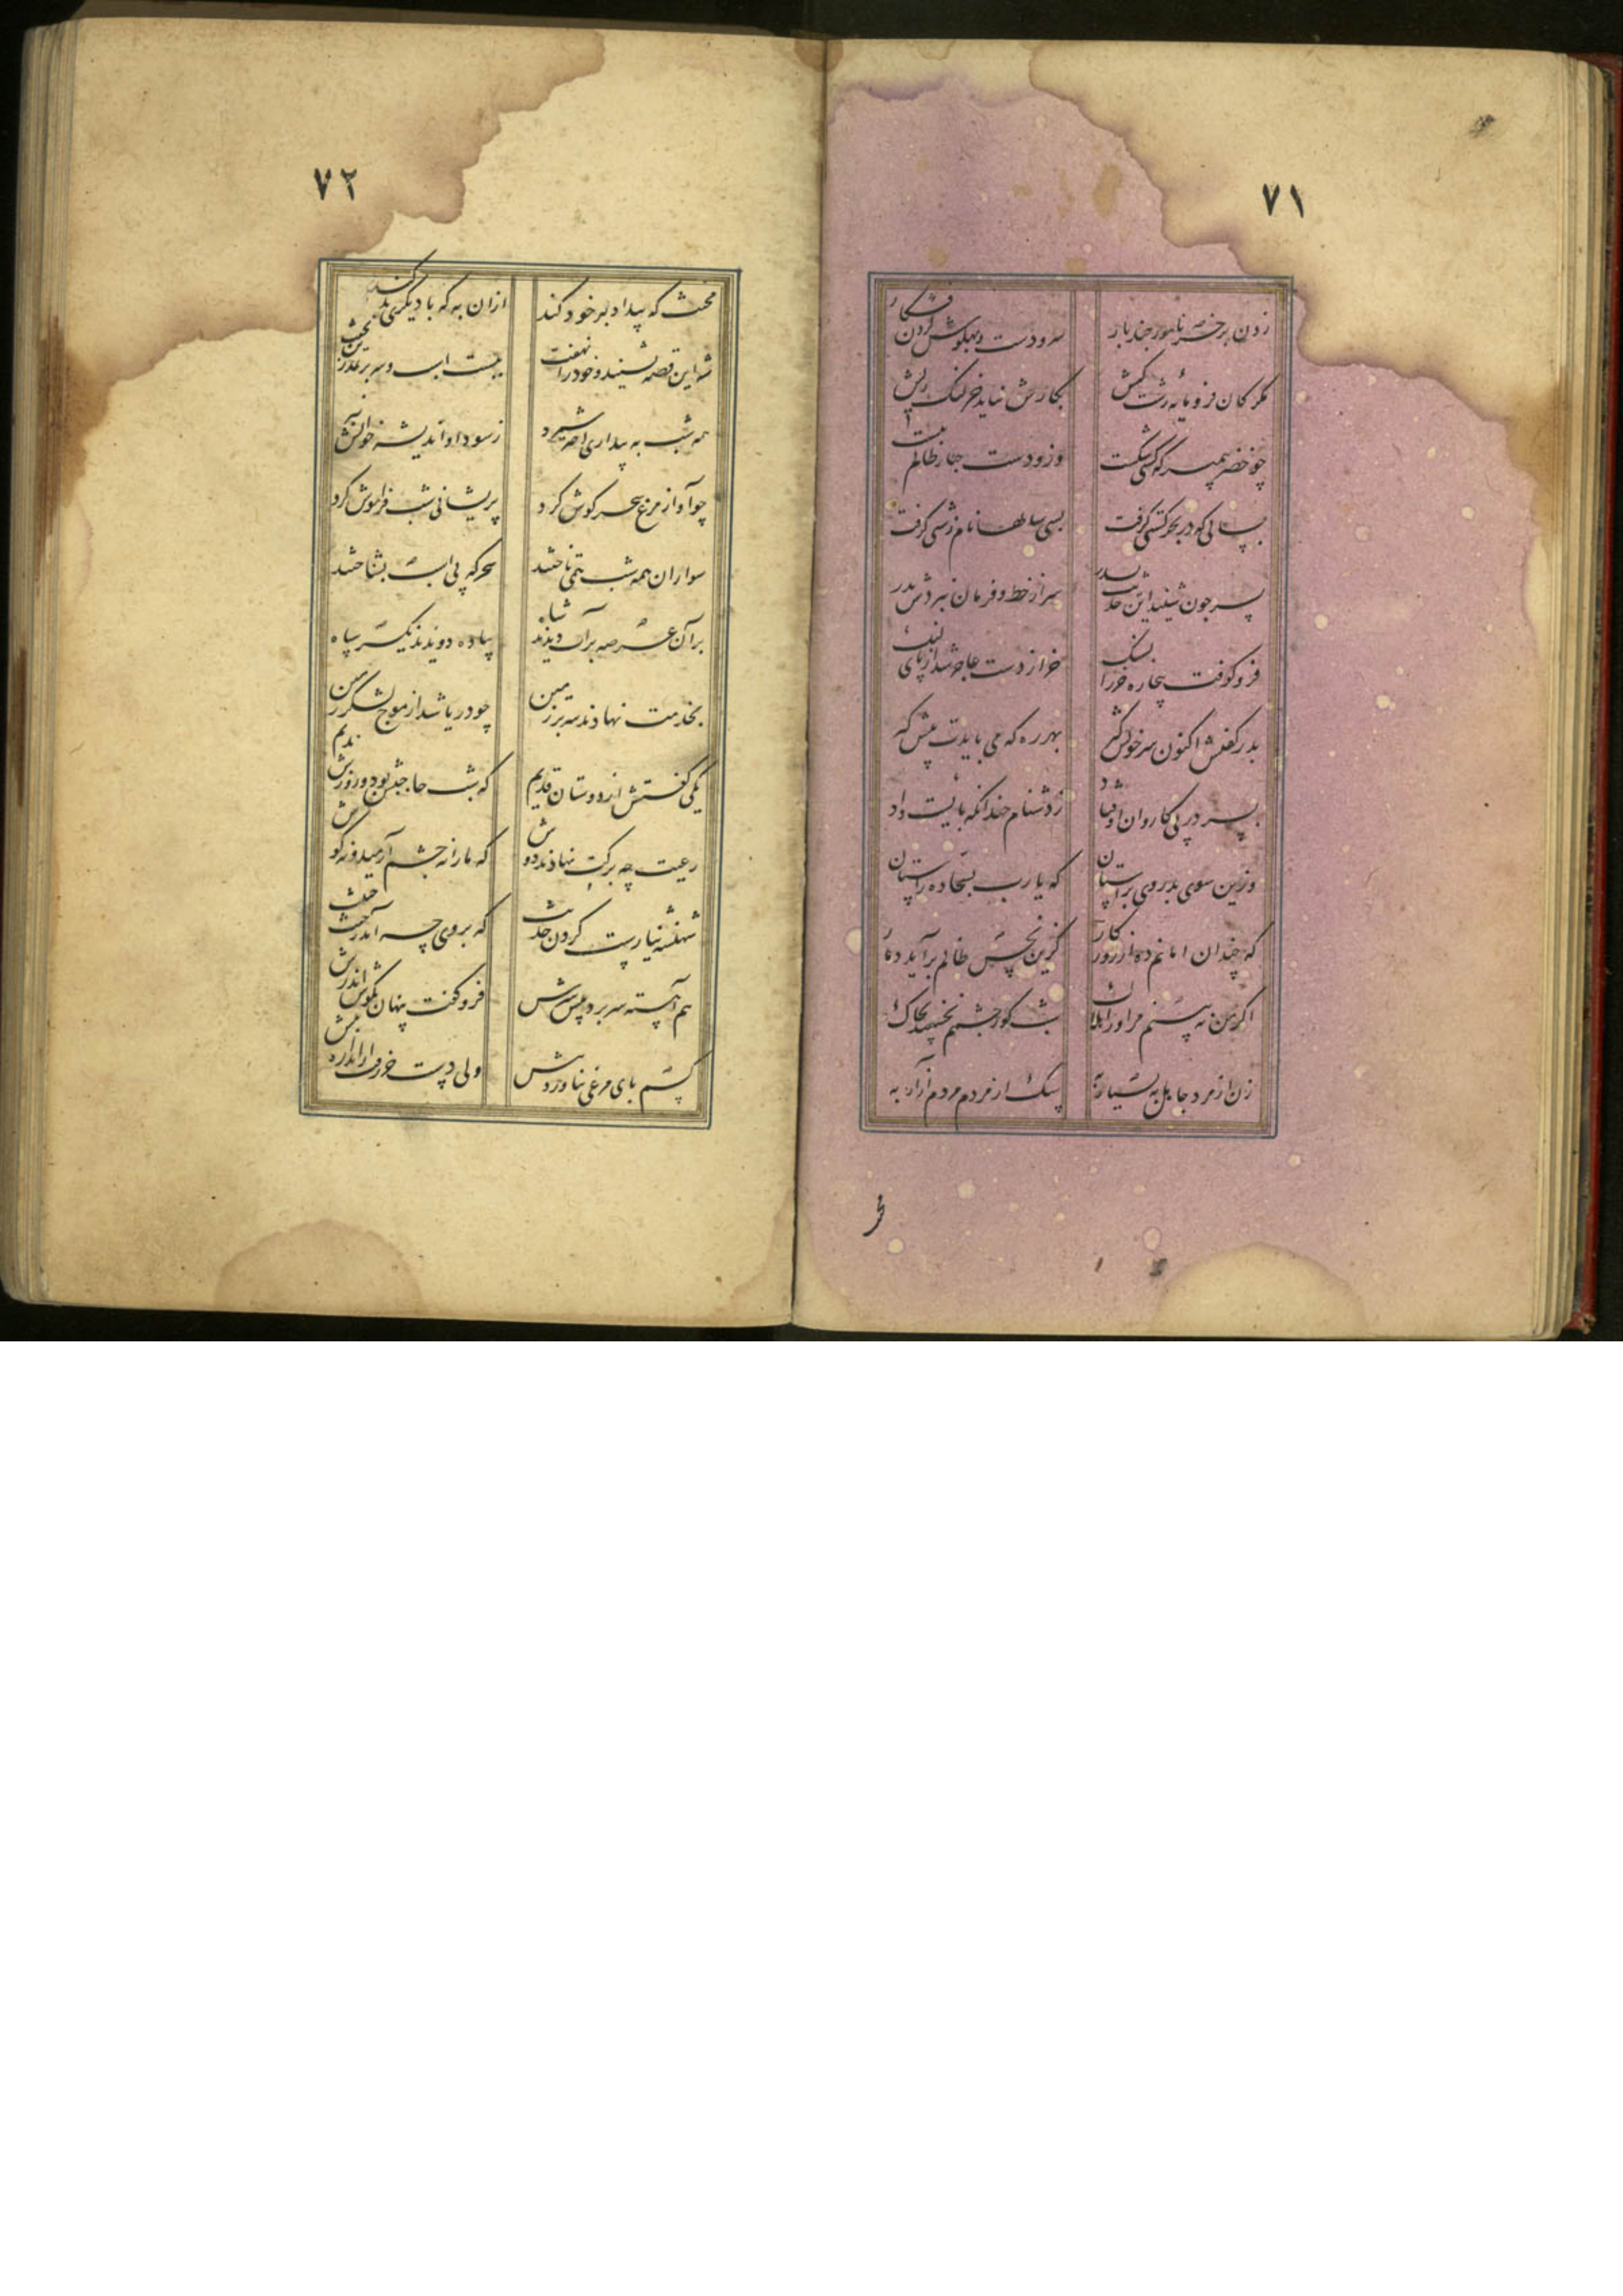 ۷۱
زدن بر خر نامور چند بار
سر و دست و پهلوش کردن فکار
مکر کان فرومایه زشت کیش
بکارش نیاید خر لنک ریش
چو خضر پیمبر که کشتی شکست
وزو دست جبار ظالم ببست
بسالی که در بحر کشتی کرفت
بسی سالها نام زشتی کرفت
پسر چون شنید این حدیث از پدر
سر از خط و فرمان نبردش بدر
فرو کوفت بیچاره خر را بسنک
خر از دست عاجز شد از پای لنک
پدر کفتش اکنون سر خویش کیر
بهر ره که می بایدت پیش کیر
پسر در پی کاروان اوفتاد
ز دشنام چندانکه بایست داد
وزین سوی پدر روی بر آستان
که یا رب بسجاده راستان
که چندان امانم ده از روزکار
کزین نحس ظالم برآید دمار
اکر من نه بینم مر او را هلاک
شب کور چشمم نخسبد بخاک
زن از مرد جاهل به بسیار به
سک از مردم مردم آزار به
مخ
۷۲
مخنث که بیداد بر خود کند
ازان به که با دیکری بد کند
شه این قصه بشنید و خود را نهفت
ببست اسب و سر بر نمدزین بخفت
همه شب به بیداری اختر شمرد
ز سودا و اندیشه خوابش نبرد
چو آواز مرغ سحر کوش کرد
پریشانی شب فراموش کرد
سواران همه شب همی تاختند
سحرکه پی اسب بشناختند
بر آن عرصه بر اسب دیدند شاه
پیاده دویدند یکسر سپاه
بخدمت نهادند سر بر زمین
چو دریا شد از موج لشکر زمین
یکی کفتش از دوستان قدیم
که شب حاجبش بود و روزش ندیم
رعیت چه برکت نهادند دوش
که ما را نه چشم آرمید و نه کوش
شهنشه نیارست کردن حدیث
که بر وی چه آمد ز خبث خبیث
هم آهسته سر برد پیش سرش
فرو کفت پنهان بکوش اندرش
کسم پای مرغی نیاورد پیش
ولی دست خر رفت از اندازه بیش